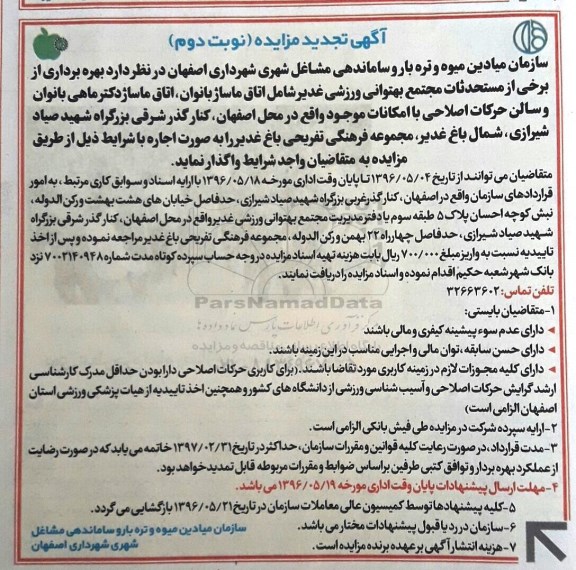 آگهی تجدید مزایده (نوبت دوم)
سازمان میادین میوه و تره بار و ساماندهی مشاغل شهری شهرداری اصفهان در نظر دارد بهره برداری از
برخی از مستحدثات مجتمع بهتوانی ورزشی غدیر شامل اتاق ماساژ بانوان، اتاق ماساژ دکتر ماهی بانوان
و سالن حرکات اصلاحی با امکانات موجود واقع در محل اصفهان، کنار گذر شرقی بزرگراه شهید صیاد
شیرازی، شمال باغ غدیر، مجموعه فرهنگی تفریحی باغ غدیر را به صورت اجاره با شرایط ذیل از طریق
مزایده به متقاضیان واجد شرایط واگذار نماید.
متقاضیان می توانند از تاریخ ۱۳۹۶/۰۵/۰۴ تا پایان وقت اداری مورخه ۱۳۹۶/۰۵/۱۸ با ارایه اسناد و سوابق کاری مرتبط، به امور
قراردادهای سازمان واقع در اصفهان، کنار گذر غربی بزرگراه شهید صیاد شیرازی، حدفاصل خیابان های هشت بهشت و رکن الدوله،
نبش کوچه احسان پلاک ۵ طبقه سوم یا دفتر مدیریت مجتمع بهتوانی ورزشی غدیر واقع در محل اصفهان، کنار گذر شرقی بزرگراه
شهید صیاد شیرازی، حدفاصل چهارراه ۲۲ بهمن و رکن الدوله، مجموعه فرهنگی تفریحی باغ غدیر مراجعه نموده و پس از اخذ
تاییدیه نسبت به واریز مبلغ ۷۰۰/۰۰۰ ریال بابت هزینه تهیه اسناد مزایده در وجه حساب سپرده کوتاه مدت شماره ۷۰۰۲۱۴۰۹۴۸ نزد
بانک شهر شعبه حکیم اقدام نموده و اسناد مزایده را دریافت نمایند.
تلفن تماس: ۳۲۶۶۳۶۰۲
ParsNamadData
۱-متقاضیان بایستی:
دارای عدم سوء پیشینه کیفری و مالی باشند
دارای حسن سابقه، توان مالی و اجرایی مناسب در این زمینه باشند.
دارای کلیه مجوزات لازم در زمینه کاربری مورد تقاضا باشند. (برای کاربری حرکات اصلاحی دارا بودن حداقل مدرک کارشناسی
ارشد گرایش حرکات اصلاحی و آسیب شناسی ورزشی از دانشگاه های کشور و همچنین اخذ تاییدیه از هیات پزشکی ورزشی استان
اصفهان الزامی است)
۲-ارایه سپرده شرکت در مزایده طی فیش بانکی الزامی است.
۳-مدت قرارداد، در صورت رعایت کلیه قوانین و مقررات سازمان، حداکثر در تاریخ ۱۳۹۷/۰۲/۳۱ خاتمه می یابد که در صورت رضایت
از عملکرد بهره بردار و توافق کتبی طرفین بر اساس ضوابط و مقررات مربوطه قابل تمدید خواهد بود.
۴- مهلت ارسال پیشنهادات پایان وقت اداری مورخه ۱۳۹۶/۰۵/۱۹ می باشد.
۵-کلیه پیشنهادها توسط کمیسیون عالی معاملات سازمان در تاریخ ۱۳۹۶/۰۵/۲۱ بازگشایی می گردد.
۶-سازمان در رد یا قبول پیشنهادات مختار می باشد.
۷-هزینه انتشار آگهی بر عهده برنده مزایده است.
سازمان میادین میوه و تره بار و ساماندهی مشاغل
شهری شهرداری اصفهان